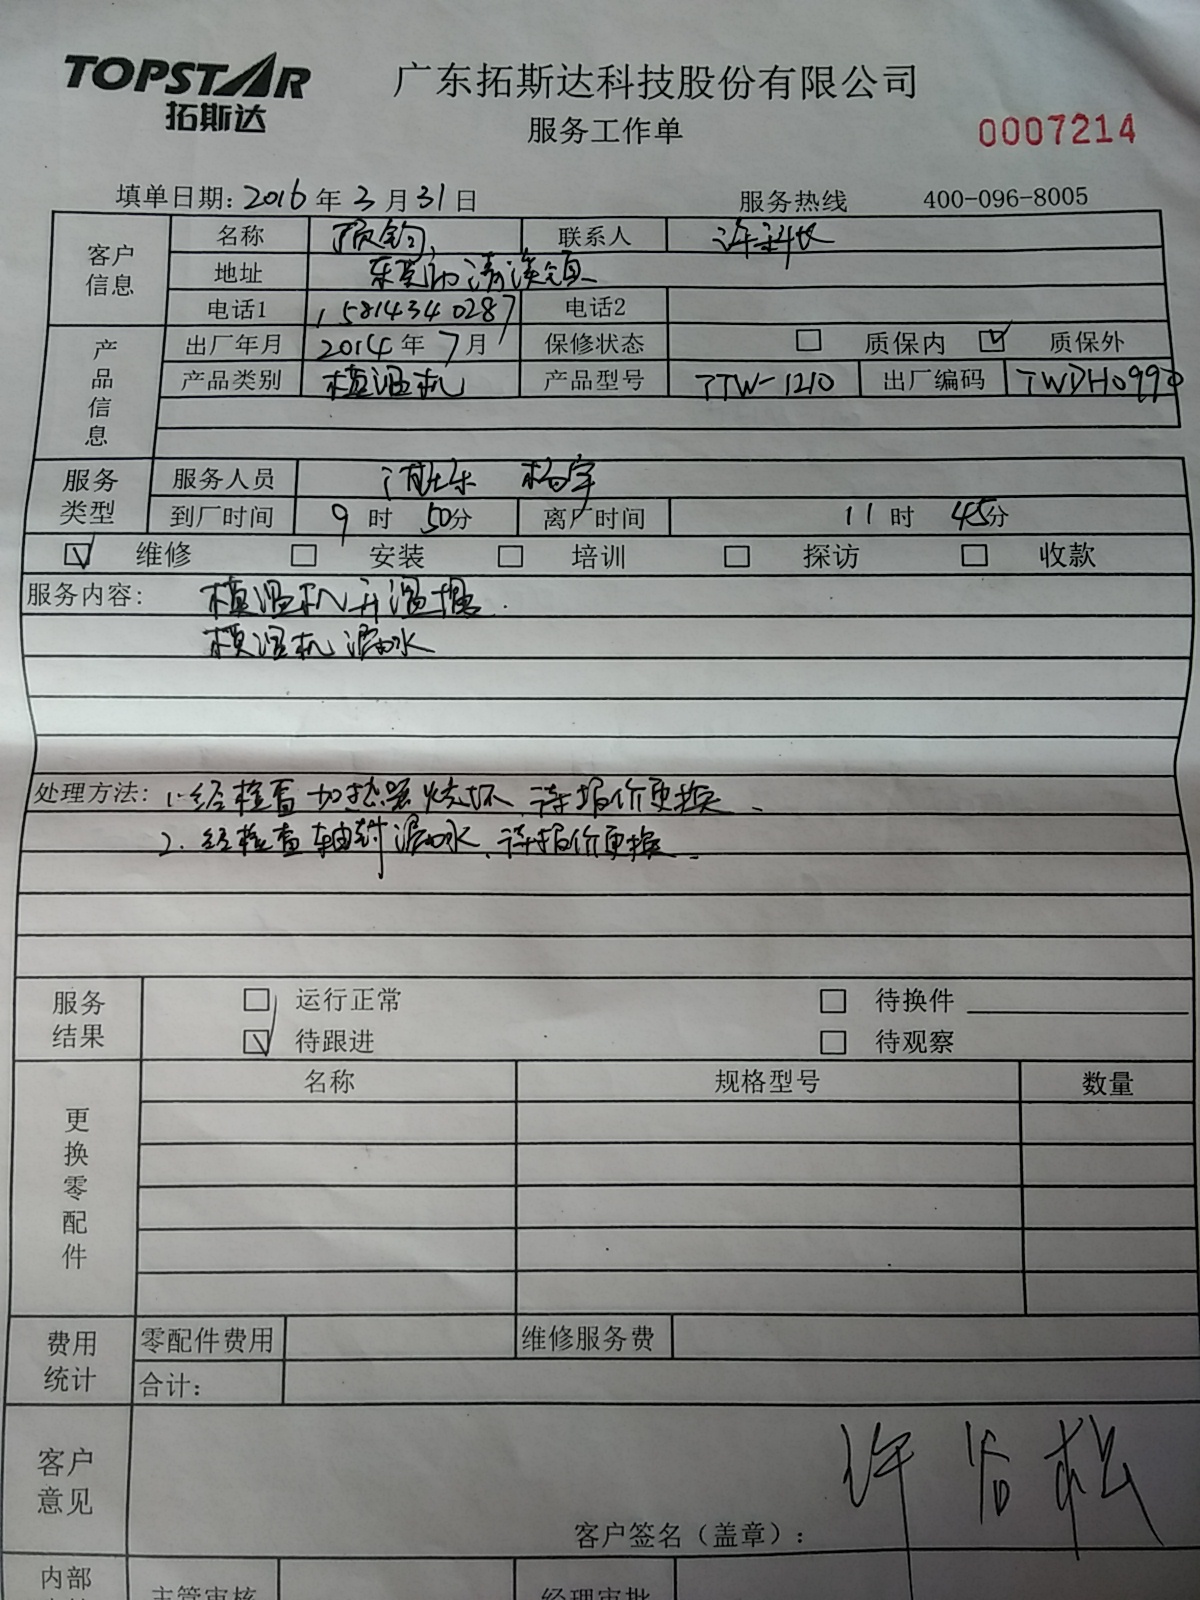 TOPSTAR
拓斯达
广东拓斯达科技股份有限公司
服务工作单
0007214
填单日期: 2016 年 3 月 31 日 服务热线 400-096-8005
客户信息 名称 联系人 许科长
地址 东莞市清溪镇
电话1 15814340287 电话2
产品信息 出厂年月 2014 年 7 月 保修状态 质保内 质保外
产品类别 模温机 产品型号 TTW-1210 出厂编码
服务类型 服务人员 杨宇
到厂时间 9 时 50分 离厂时间 11 时 45分
维修 安装 培训 探访 收款
服务内容: 模温机升温慢.
模温机漏水
处理方法: 1.经检查加热器烧坏、待报价更换、
2.经检查轴封漏水、待报价更换、
服务结果 运行正常 待换件
待跟进 待观察
更换零配件 名称 规格型号 数量
费用统计 零配件费用 维修服务费
合计:
客户意见 许 松
客户签名（盖章）:
内部 主管审核 经理审批